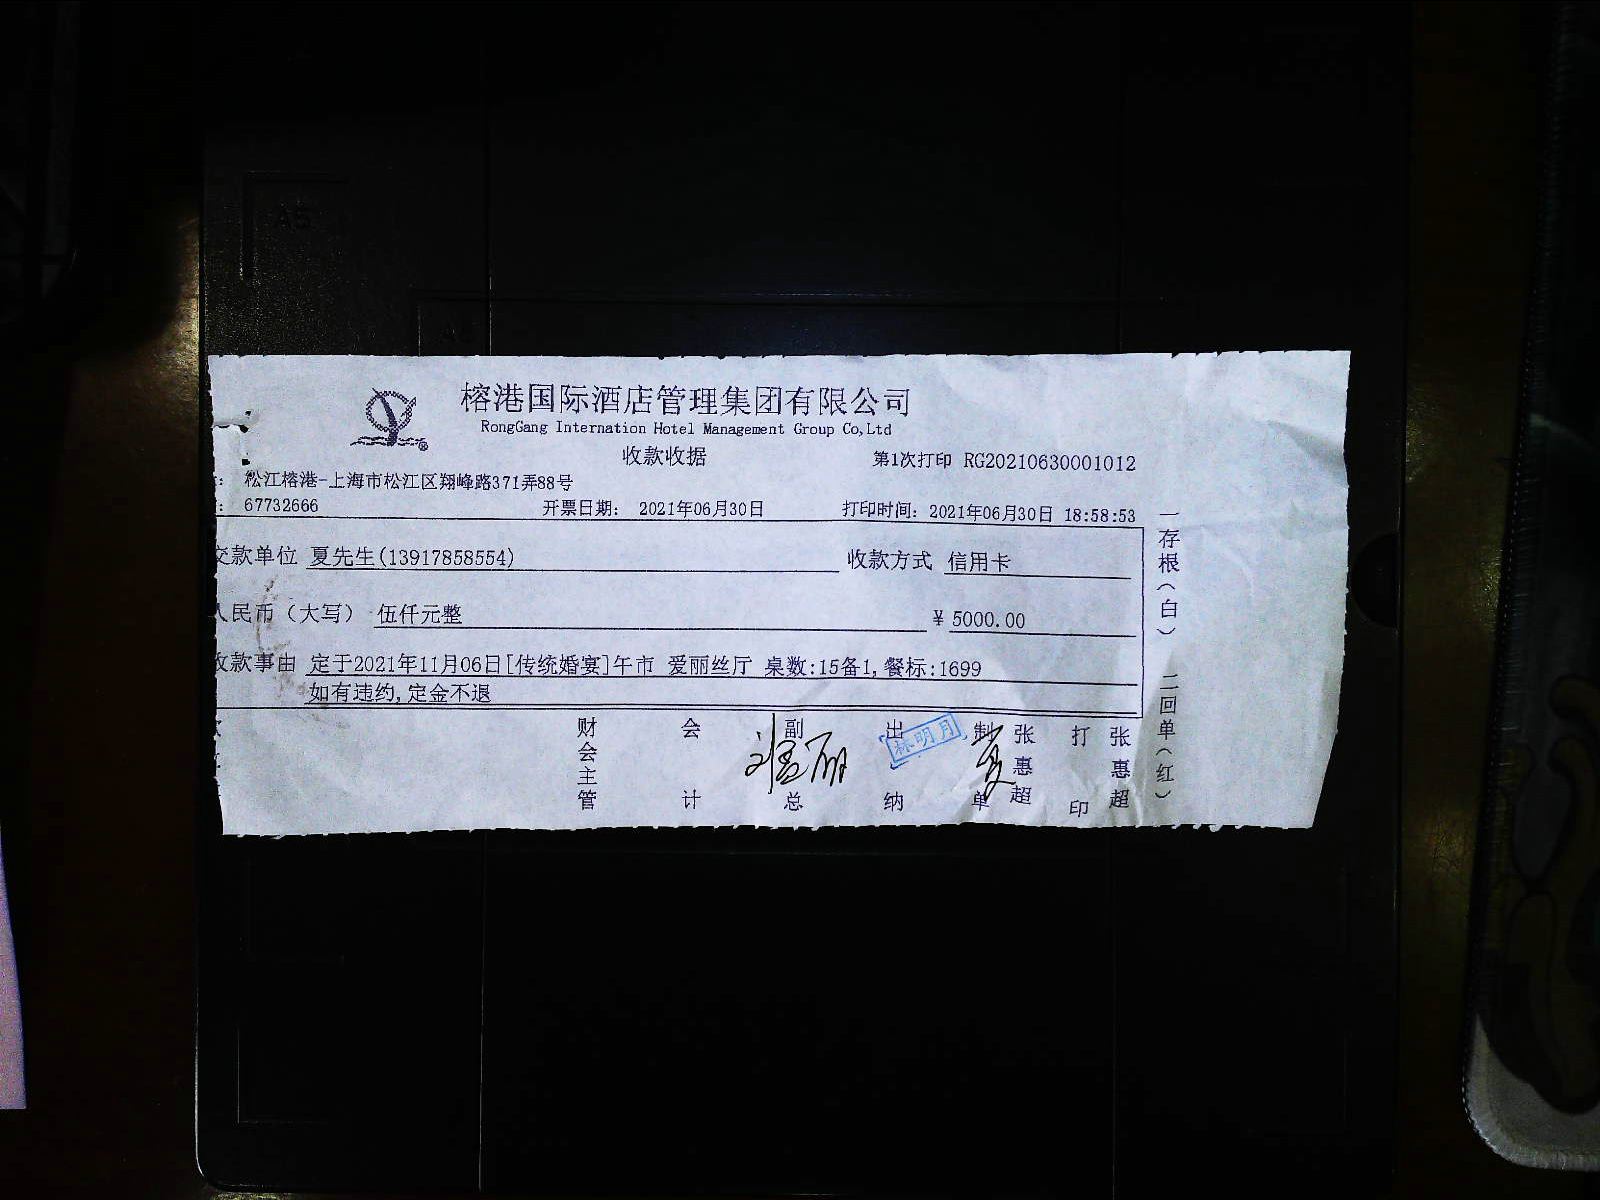 榕港国际酒店管理集团有限公司
RongGang Internation Hotel Management Group Co,Ltd
收款收据
第1次打印 RG20210630001012
: 松江榕港-上海市松江区翔峰路371弄88号
: 67732666 开票日期: 2021年06月30日 打印时间: 2021年06月30日 18:58:53
交款单位 夏先生(13917858554) 收款方式 信用卡
人民币（大写） 伍仟元整 ¥ 5000.00
收款事由 定于2021年11月06日[传统婚宴]午市 爱丽丝厅 桌数:15备1,餐标:1699
如有违约,定金不退
财会主管 会计 副总 出纳 林明月 制单 张惠超 打印 张惠超
一存根（白） 二回单（红）
A5